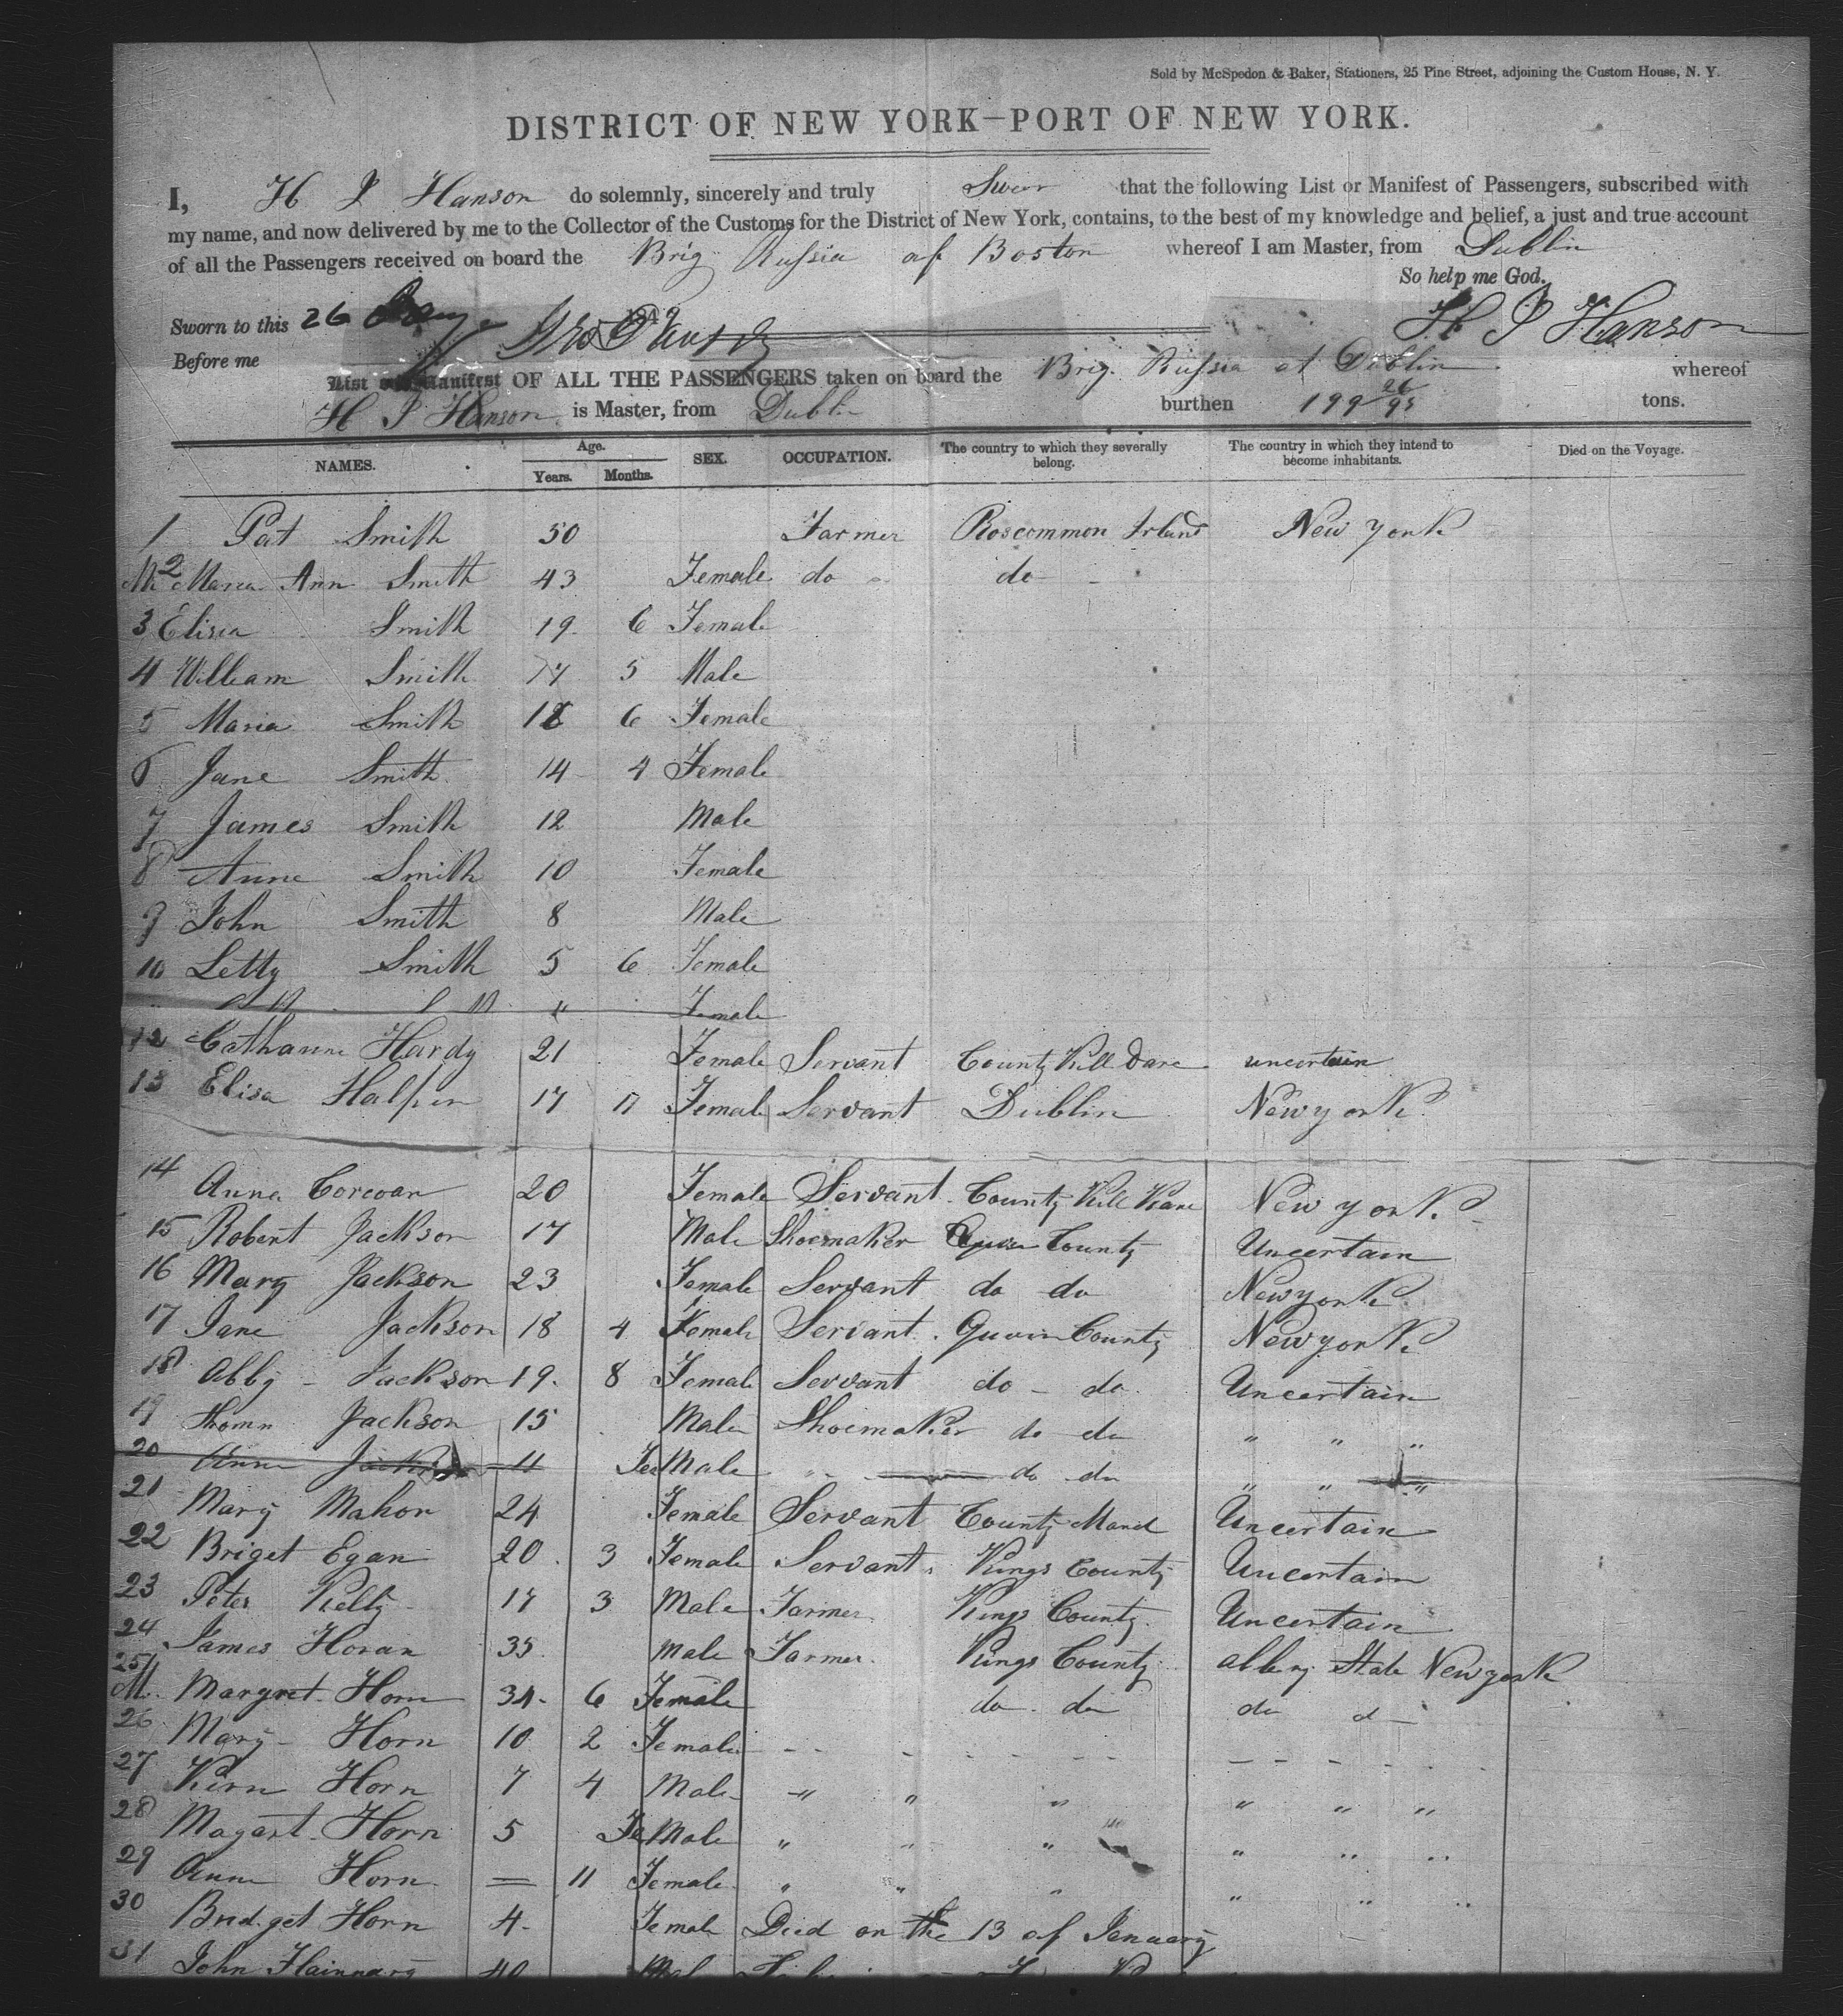 Sold by McSpedon & Baker, Stationers, 25 Pine Street, adjoining the Custom House, N. Y.
DISTRICT OF NEW YORK—PORT OF NEW YORK.
I, H P Hanson do solemnly, sincerely and truly Swear that the following List or Manifest of Passengers, subscribed with
my name, and now delivered by me to the Collector of the Customs for the District of New York, contains, to the best of my knowledge and belief, a just and true account
of all the Passengers received on board the Brig Russia of Boston whereof I am Master, from Dublin
So help me God.
Sworn to this 26 184 H P Hanson
Before me
List or Manifest OF ALL THE PASSENGERS taken on board the Brig. Russia at Dublin whereof
H P Hanson is Master, from Dublin burthen 199 26/95 tons.
NAMES. Age. Years. Months. SEX. OCCUPATION. The country to which they severally belong. The country in which they intend to become inhabitants. Died on the Voyage.
1 Pat Smith 50 Farmer Roscommon Irland New York
M 2 Maria Ann Smith 43 Female do do
3 Elisa Smith 19 6 Female
4 William Smith 17 5 Male
5 Maria Smith 18 6 Female
6 Jane Smith 14 4 Female
7 James Smith 12 Male
8 Anne Smith 10 Female
9 John Smith 8 Male
10 Letty Smith 5 6 Female
Female
12 Catharine Hardy 21 Female Servant County Kill Dare uncertain
13 Elisa Halpin 17 11 Female Servant Dublin New york
14 Anna Corcoan 20 Female Servant County Kill Kane New york
15 Robert Jackson 17 Male Shoemaker County Uncertain
16 Mary Jackson 23 Female Servant do do New york
17 Jane Jackson 18 4 Female Servant County New york
18 Abby Jackson 19 8 Female Servant do do Uncertain
19 Thomn Jackson 15 Male Shoemaker do do " " "
20 Ann Jackson 11 FeMale do do " " "
21 Mary Mahon 24 Female Servant County Uncertain
22 Briget Egan 20 3 Female Servant Kings County Uncertain
23 Peter Kelly 17 3 Male Farmer Kings County Uncertain
24 James Horan 35 Male Farmer Kings County albeny State New york
25 M. Margret Horn 34 6 Female do do do d
26 Mary Horn 10 2 Female - - - - - -
27 Kirn Horn 7 4 Male " " " " " "
28 Magart Horn 5 FeMale " " " " " "
29 Ann Horn = 11 Female " " " " " "
30 Bridget Horn 4 Female Died on the 13 of January
31 John 40